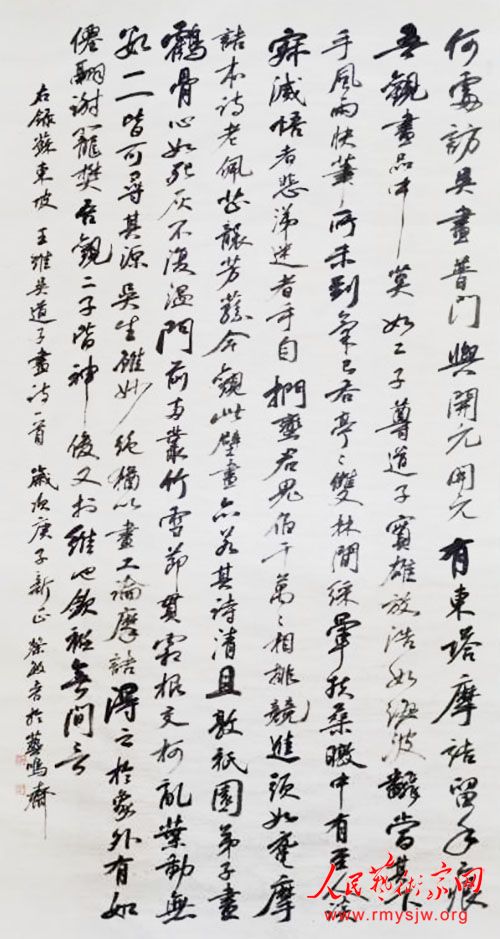 何處訪吳畫普門與開元開元有東塔摩詰留手痕
吾觀畫品中莫如二子尊道子實雄放浩如海波翻當其下
手風雨快筆所未到氣已吞亭〻雙林間綵暈扶桑暾中有至人談
寂滅悟者悲涕迷者手自捫蠻君鬼伯千萬〻相排競進頭如黿摩
詰本詩老佩芷襲芳蓀今觀此壁畫亦若其詩清且敦祇園弟子盡
鶴骨心如死灰不復溫門前兩叢竹雪節貫霜根交柯亂葉動無
數一一皆可尋其源吳生雖妙絕猶以畫工論摩詰得之於象外有如
僊翮謝籠樊吾觀二子皆神俊又於維也歛衽無間言
右錄蘇東坡王維吳道子畫詩一首歲次庚子新正蔡敏書於藝鳴齋
人民藝術家网
www.rmysjw.org